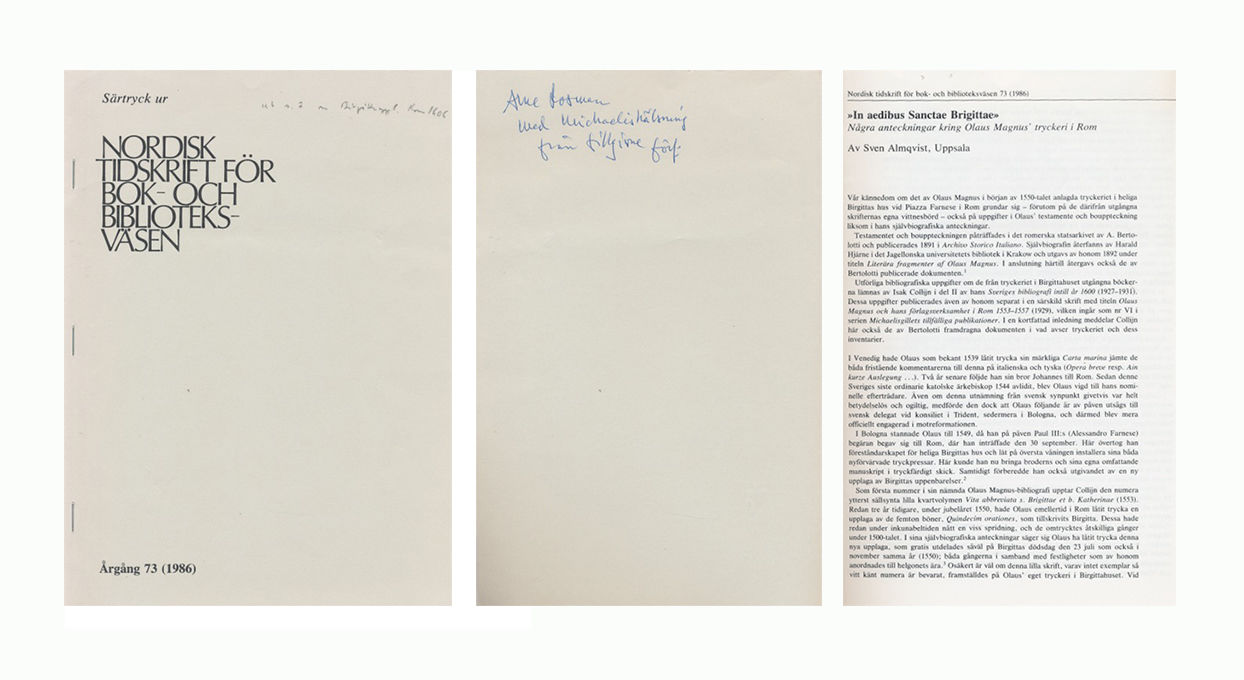 Särtryck ur
NORDISK
TIDSKRIFT FÖR
BOK- OCH
BIBLIOTEKS-
VÄSEN
Årgång 73 (1986)
med Michaelishälsning
från tillgivne förf.
Nordisk tidskrift för bok- och biblioteksväsen 73 (1986)
»In aedibus Sanctae Brigittae»
Några anteckningar kring Olaus Magnus' tryckeri i Rom
Av Sven Almqvist, Uppsala
Vår kännedom om det av Olaus Magnus i början av 1550-talet anlagda tryckeriet i heliga
Birgittas hus vid Piazza Farnese i Rom grundar sig – förutom på de därifrån utgångna
skrifternas egna vittnesbörd – också på uppgifter i Olaus' testamente och bouppteckning
liksom i hans självbiografiska anteckningar.
Testamentet och bouppteckningen påträffades i det romerska statsarkivet av A. Berto-
lotti och publicerades 1891 i Archivo Storico Italiano. Självbiografin återfanns av Harald
Hjärne i det Jagellonska universitetets bibliotek i Krakow och utgavs av honom 1892 under
titeln Literära fragmenter af Olaus Magnus. I anslutning härtill återgavs också de av
Bertolotti publicerade dokumenten.1
Utförliga bibliografiska uppgifter om de från tryckeriet i Birgittahuset utgångna böcker-
na lämnas av Isak Collijn i del II av hans Sveriges bibliografi intill år 1600 (1927–1931).
Dessa uppgifter publicerades även av honom separat i en särskild skrift med titeln Olaus
Magnus och hans förlagsverksamhet i Rom 1553–1557 (1929), vilken ingår som nr VI i
serien Michaelisgillets tillfälliga publikationer. I en kortfattad inledning meddelar Collijn
här också de av Bertolotti framdragna dokumenten i vad avser tryckeriet och dess
inventarier.
I Venedig hade Olaus som bekant 1539 låtit trycka sin märkliga Carta marina jämte de
båda fristående kommentarerna till denna på italienska och tyska (Opera breve resp. Ain
kurze Auslegung ...). Två år senare följde han sin bror Johannes till Rom. Sedan denne
Sveriges siste ordinarie katolske ärkebiskop 1544 avlidit, blev Olaus vigd till hans nomi-
nelle efterträdare. Även om denna utnämning från svensk synpunkt givetvis var helt
betydelselös och ogiltig, medförde den dock att Olaus följande år av påven utsågs till
svensk delegat vid konsiliet i Trident, sedermera i Bologna, och därmed blev mera
officiellt engagerad i motreformationen.
I Bologna stannade Olaus till 1549, då han på påven Paul III:s (Alessandro Farnese)
begäran begav sig till Rom, där han inträffade den 30 september. Här övertog han
föreståndarskapet för heliga Birgittas hus och lät på översta våningen installera sina båda
nyförvärvade tryckpressar. Här kunde han nu bringa broderns och sina egna omfattande
manuskript i tryckfärdigt skick. Samtidigt förberedde han också utgivandet av en ny
upplaga av Birgittas uppenbarelser.2
Som första nummer i sin nämnda Olaus Magnus-bibliografi upptar Collijn den numera
ytterst sällsynta lilla kvartvolymen Vita abbreviata s. Brigittae et b. Katherinae (1553).
Redan tre år tidigare, under jubelåret 1550, hade Olaus emellertid i Rom låtit trycka en
upplaga av de femton böner, Quindecim orationes, som tillskrivits Birgitta. Dessa hade
redan under inkunabeltiden nått en viss spridning, och de omtrycktes åtskilliga gånger
under 1500-talet. I sina självbiografiska anteckningar säger sig Olaus ha låtit trycka denna
nya upplaga, som gratis utdelades såväl på Birgittas dödsdag den 23 juli som också i
november samma år (1550); båda gångerna i samband med festligheter som av honom
anordnades till helgonets ära.3 Osäkert är väl om denna lilla skrift, varav intet exemplar så
vitt känt numera är bevarat, framställdes på Olaus' eget tryckeri i Birgittahuset. Vid